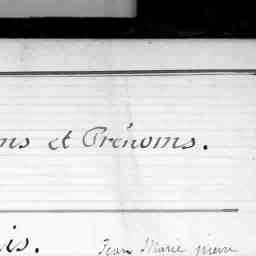 ns et Prénoms.
is. Jean Marie pierre